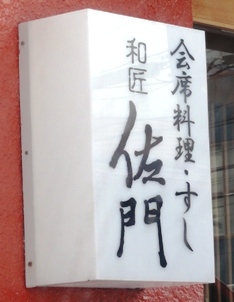 会席料理・すし
和匠
佐門